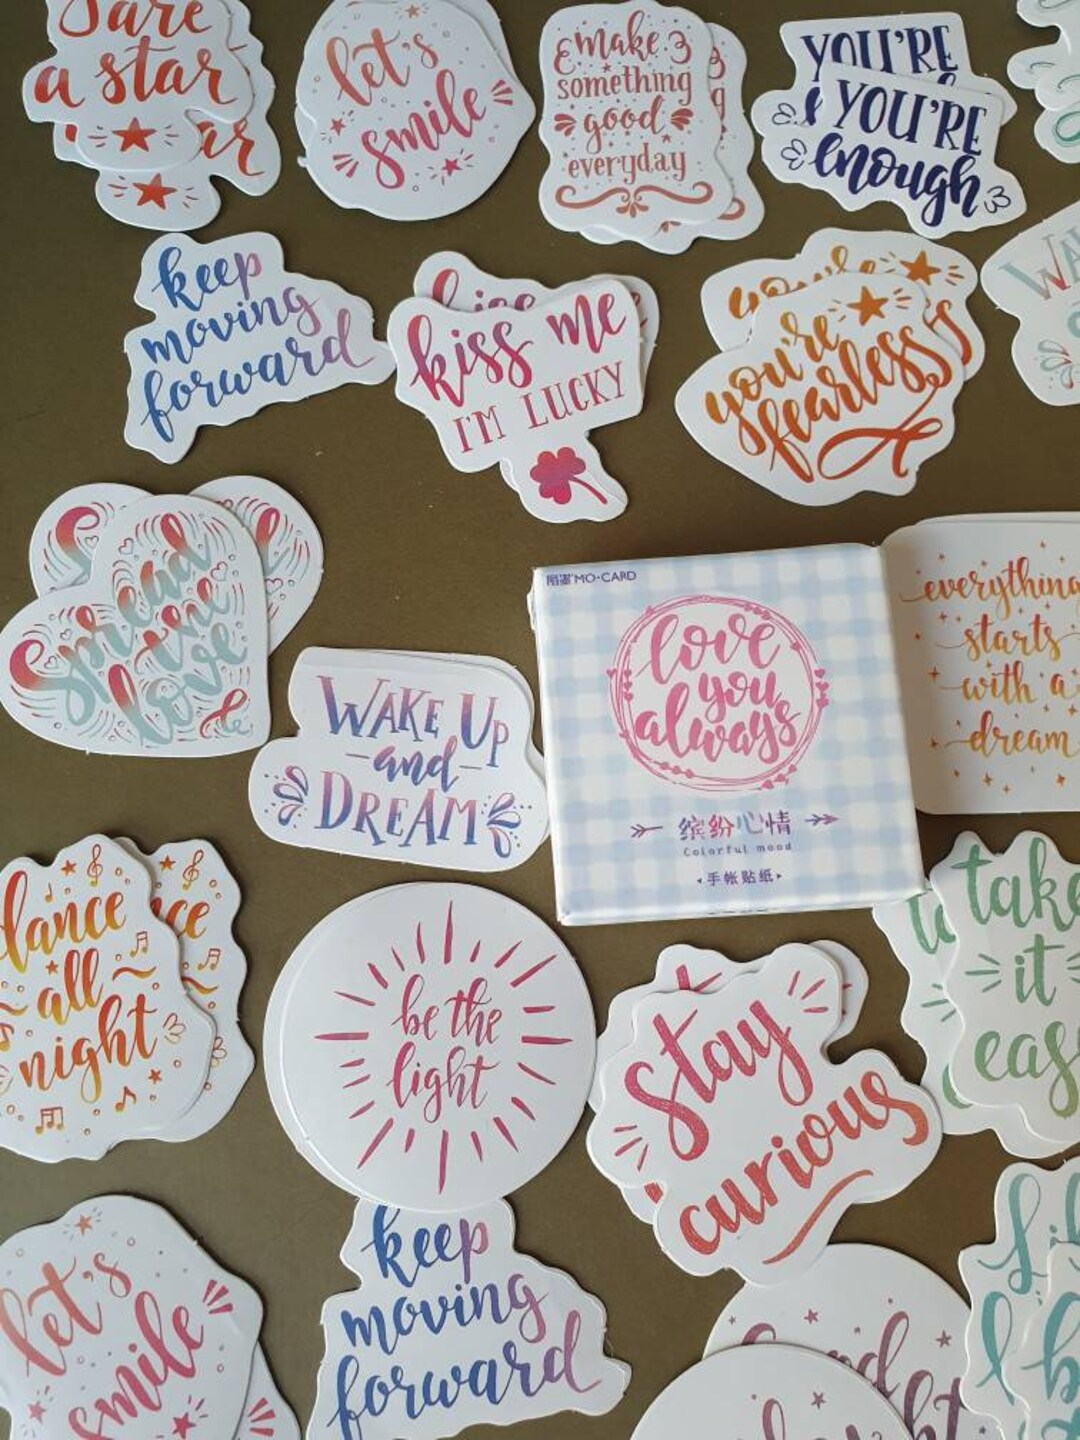 are
a star
let's
smile
make
something
good
everyday
YOU'RE
YOU'RE
enough
keep
moving
forward
kiss
kiss me
I'M LUCKY
you're
you're
fearless
Spread
the
love
WAKE UP
and
DREAM
陌墨 MO·CARD
love
you
always
缤纷心情
Colorful mood
手帐贴纸
everything
starts
with a
dream
dance
all
night
be the
light
stay
curious
take
it
easy
let's
smile
keep
moving
forward